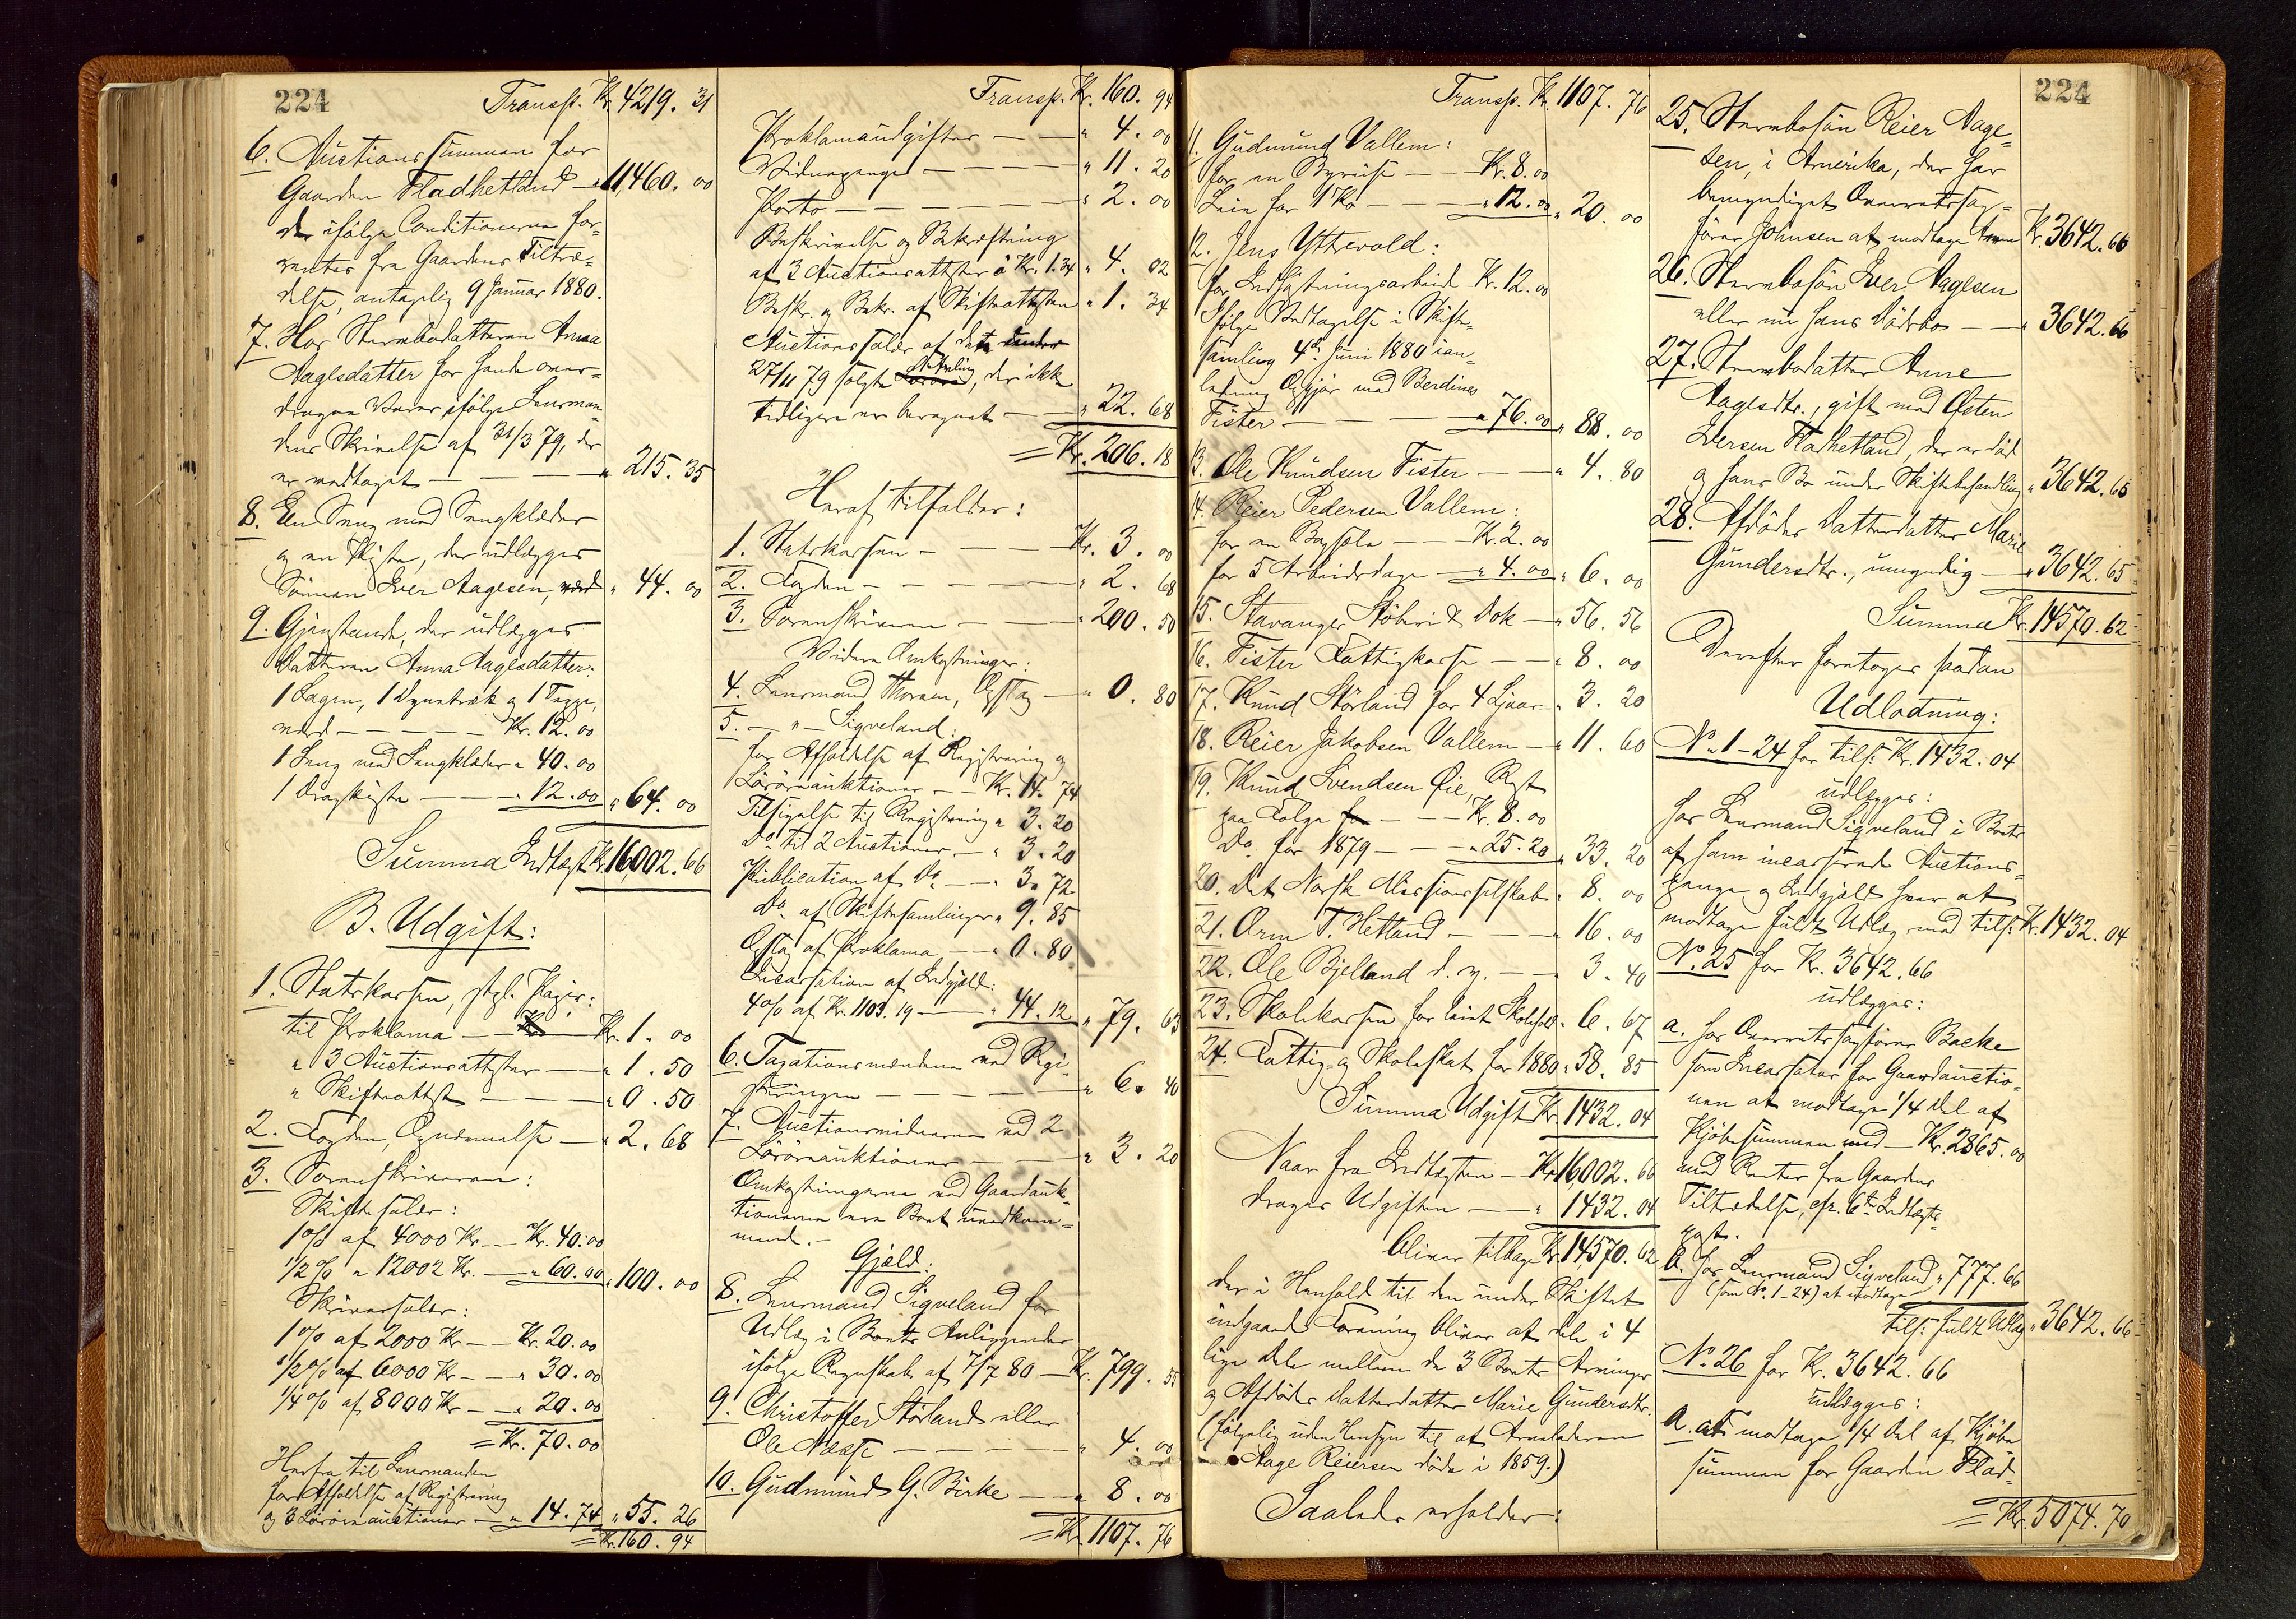 224
Transp. Kr. 4219. 31
6. Auctionssummen for
Gaarden Fladhetland — " 11,460. 00
der ifölge Conditionerne for-
rentes fra Gaardens Tiltræ-
delse, antagelig 9 Januar 1880.
7. Hos Stervbodatteren Anna
Aagesdatter for hende over-
dragne Varer ifölge Lensman-
dens Skrivelse af 31/3 79, der
er modtaget — — — " 215. 35
8. En Seng med Sengklæder
og en Kiste, der udlægges
Sönnen Iver Aagesen, værd " 44. 00
9. Gjenstande, der udlægges
Datteren Anna Aagesdatter:
1 Lagen, 1 Dynetræk og 1 Teppe,
værd — — — — Kr. 12. 00
1 Seng med Sengklæder " 40. 00
1 Dragkiste — — " 12. 00 " 64. 00
Summa Indtægt Kr. 16,002. 66
B. Udgift:
1. Statskassen, stpl. Papir:
til Proklama — Kr. 1. 00
" 3 Auctionsattester — " 1. 50
" Skifteattest — — " 0. 50
2. Fogden, Opnævnelse — " 2. 68
3. Sorenskriveren:
Skiftesaler:
1% af 4000 Kr. — Kr. 40. 00
1/2% " 12002 Kr. — " 60. 00 " 100. 00
Skriversaler:
1% af 2000 Kr — Kr. 20. 00
1/2% af 6000 Kr — " 30. 00
1/4% af 8000 Kr — " 20. 00
= Kr. 70. 00
Herfra til Lensmanden
for Afholdelse af Registrering
og 3 Lösöreauctioner — " 14. 74 " 55. 26
= Kr. 160. 94
Transp. Kr. 160. 94
Proklamaudgifter — — " 4. 00
Vidnepenge — — — " 11. 20
Porto — — — — " 2. 00
Beskrivelse og Bekræftning
af 3 Auctionsattester à Kr. 1.34 " 4. 02
Beskr. og Bekr. af Skifteattesten " 1. 34
Auctionssaler af dets under
27/11 79 solgte, der ikke
tidligere er beregnet — " 22. 68
= Kr. 206. 18
Heraf tilfalder:
1. Statskassen — — — Kr. 3. 00
2. Fogden — — — " 2. 68
3. Sorenskriveren — — " 200. 50
Videre Omkostninger:
4. Lensmand Thorsen, Opslag — " 0. 80
5. — " — Sigveland:
for Afholdelse af Registrering og
Lösöreauktioner — Kr. 14. 74
Tilsigelse til Registrering " 3. 20
Do til 2 Auctioner — " 3. 20
Publication af Do — " 3. 72
Do af Skiftesamlinger " 9. 85
Opslag af Proklama — " 0. 80
Incassation af Indgjeld:
4% af Kr. 1103. 19 — " 44. 12 " 79. 63
6. Taxationsmændene ved Regi-
streringen — — — " 6. 40
7. Auctionsvidnerne ved 2
Lösöreauktioner — — " 3. 20
Omkostningerne ved Gaardauk-
tionerne ere Boet uvedkom-
mende. —
Gjæld:
8. Lensmand Sigveland for
Udlæg i Boets Anliggender
ifölge Regnskab af 7/7 80 — Kr. 799. 55
9. Christoffer Störland eller
Ole Næsse — — — " 4. 00
10. Gudmund G. Birke — " 8. 00
= Kr. 1107. 76
Transp. Kr. 1107. 76
11. Gudmund Vallem:
for en Byreise — — Kr. 8. 00
Leie for 1 Ko — — " 12. 00 " 20. 00
12. Jens Yttevold:
for Indhöstningsarbeid Kr. 12. 00
Ifölge Vedtagelse i Skifte-
samling 4de Juni 1880 ian-
ledning Opgjör med Berdines
Fister — — — " 76. 00 " 88. 00
13. Ole Knudsen Fister — — " 4. 80
14. Reier Pedersen Vallem:
for en Bogsöle — — Kr. 2. 00
for 5 Arbeidsdage — " 4. 00 " 6. 00
15. Stavanger Stöberi & Dok — " 56. 56
16. Fister Fattigkasse — — " 8. 00
17. Knud Störland for 4 Ljaar " 3. 20
18. Reier Jakobsen Vallem — " 11. 60
19. Knud Svendsen Öie, Rest
paa Fölge — — Kr. 8. 00
Do for 1879 — — " 25. 20 " 33. 20
20. Det Norske Missionsselskab " 8. 00
21. Orm T. Hetland — — " 16. 00
22. Ole Bjelland d. y. — — " 3. 40
23. Skolekassen for leiet Skolehold " 6. 67
24. Fattig- og Skoleskat for 1880 " 58. 85
Summa Udgift Kr. 1432. 04
Naar fra Indtægten — Kr. 16,002. 66
drages Udgiften — — " 1432. 04
bliver tilbage Kr. 14,570. 62
der i Henhold til den under Skiftet
indgaaede Forening bliver at dele i 4
lige Dele mellem de 3 Boets Arvinger
og Afdödes Datterdatter Marie Gundersdtr.
(fölgelig uden Hensyn til at Arveladeren
Aage Reiersen döde i 1859.)
Saaledes erholder:
224
25. Stervbosön Reier Aage-
sen, i Amerika, der har
bemyndiget Overretssag-
förer Johnsen at modtage Arven Kr. 3642. 66
26. Stervbosön Iver Aagesen
eller nu hans Dödsbo — — " 3642. 66
27. Stervbodatter Anne
Aagesdtr., gift med Östen
Iversen Fladhetland, der er död
og hans Bo under Skiftebehandling " 3642. 65
28. Afdödes Datterdatter Marie
Gundersdtr., umyndig — " 3642. 65
Summa Kr. 14570. 62
Derefter foretoges saadan
Udlodning:
No 1-24 for tils. Kr. 1432. 04
udlægges:
hos Lensmand Sigveland i Boets
af ham incasserede Auctions-
penge og Indgjæld hver at
modtage fuldt Udlæg med tils. Kr. 1432. 04
No 25 for Kr. 3642. 66
udlægges:
a. hos Overretssagförer Backe
som Incassator for Gaardauctio-
nen at modtage 1/4 Del af
Kjöbesummen med — Kr. 2865. 00
med Renter fra Gaardens
Tiltrædelse, cfr. 6te Indtægts-
post.
b. hos Lensmand Sigveland " 777. 66
(som No 1-24) at modtage
tils. fuldt Udlæg " 3642. 66
No 26 for Kr. 3642. 66
udlægges:
a. at modtage 1/4 Del af Kjöbe-
summen for Gaarden Flad-
= Kr. 5074. 70